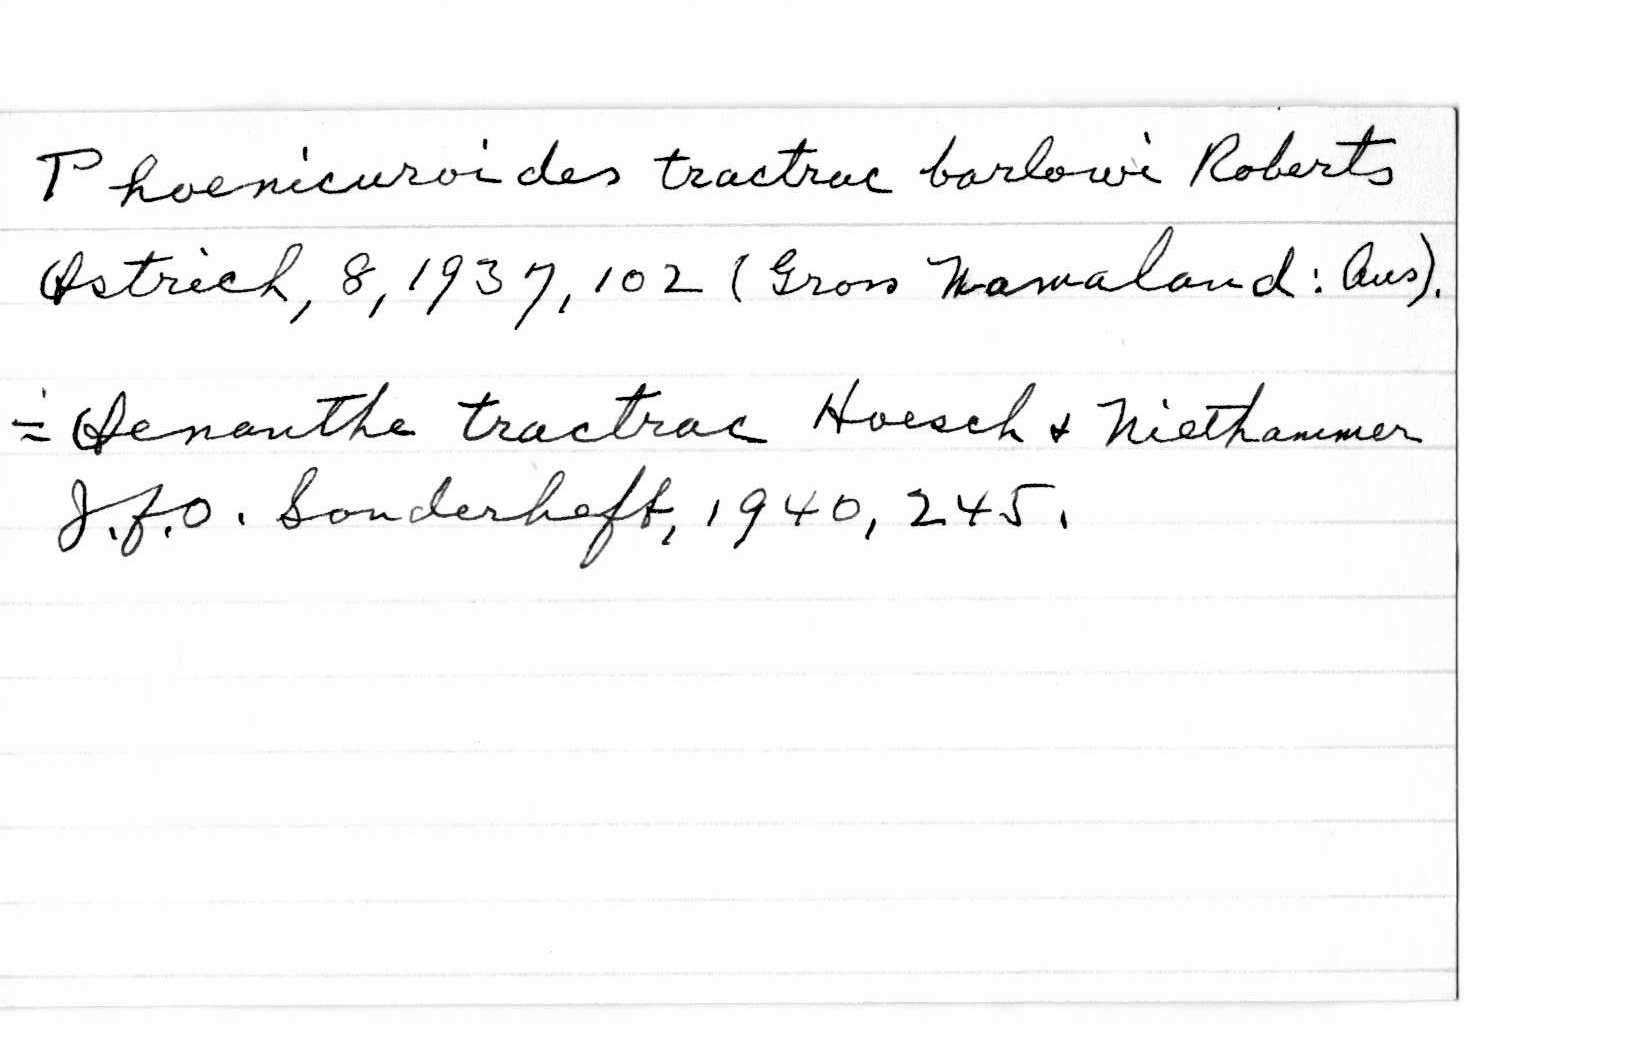 Phoenicuroides tractrac barlowi Roberts
Ostrich, 8, 1937, 102 (Gross Namaland: Aus).
= Oenanthe tractrac Hoesch & Niethammer
J.f.O. Sonderheft, 1940, 245.